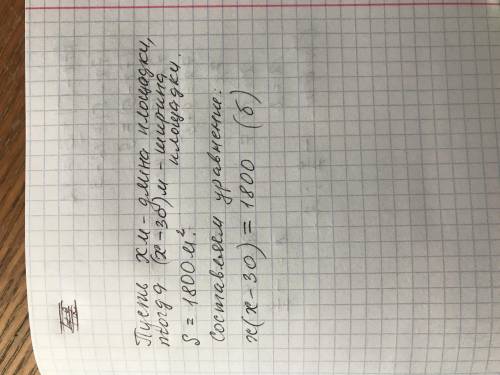 Пусть х м - длина площадки,
тогда (х-30) м - ширина
площадки.
S = 1800 м².
Составляем уравнение:
х(х-30) = 1800 (б)